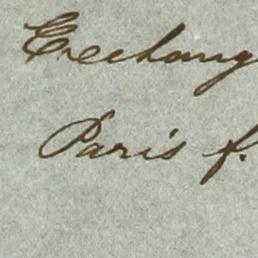 Exchang
Paris f.